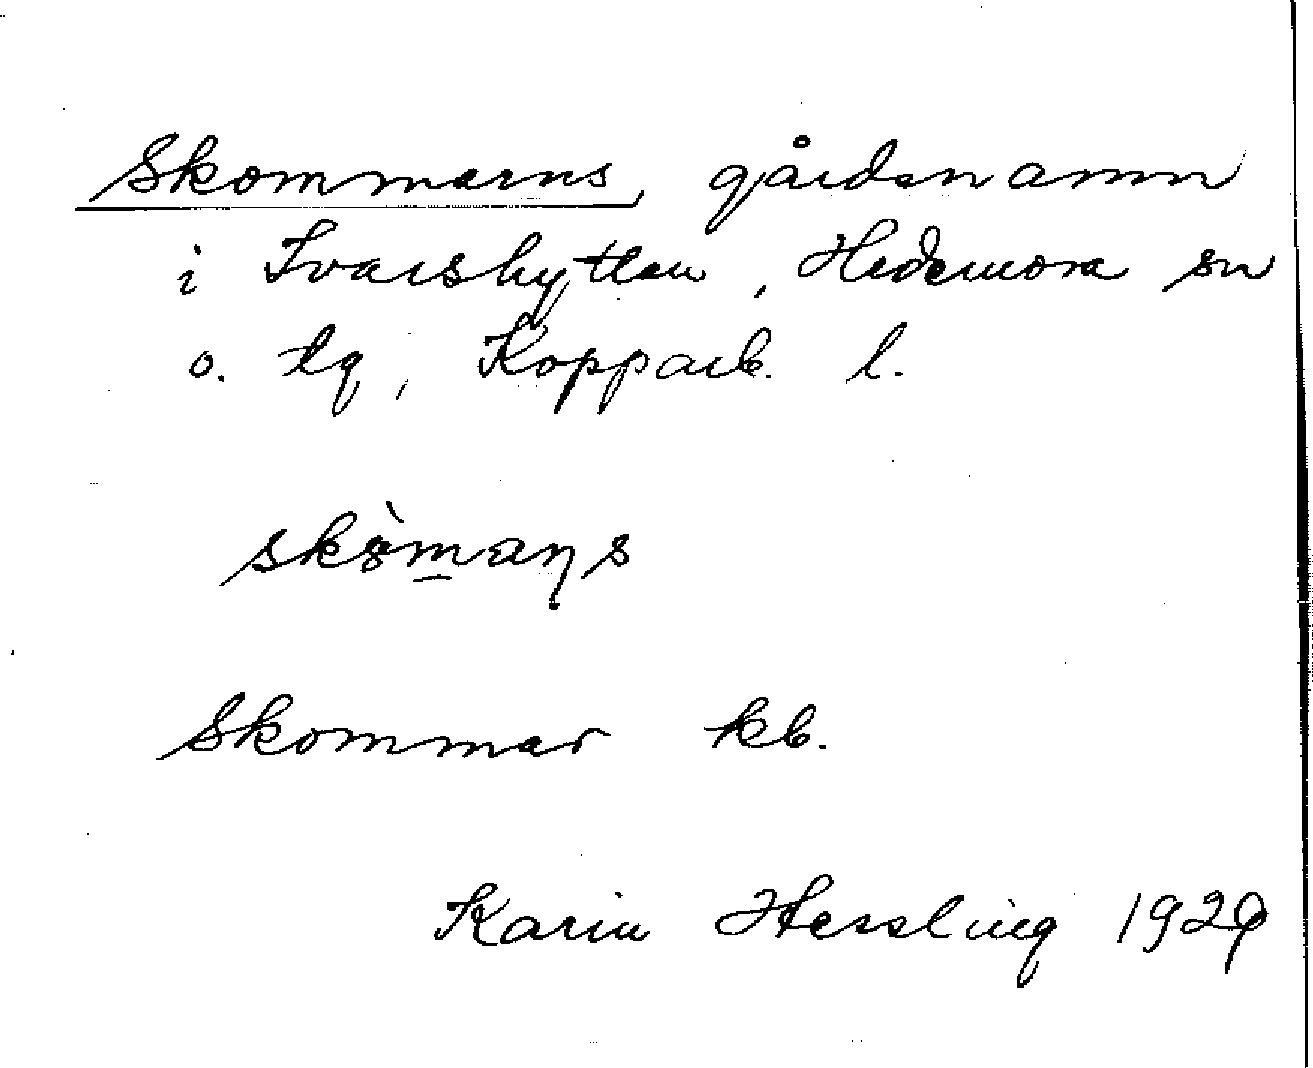 Skommarns, gårdsnamn
i Ivarshyttan, Hedemora sn
o. tg, Kopparb. l.
skòmaṇs
Skommar kb.
Karin Hessling 1929